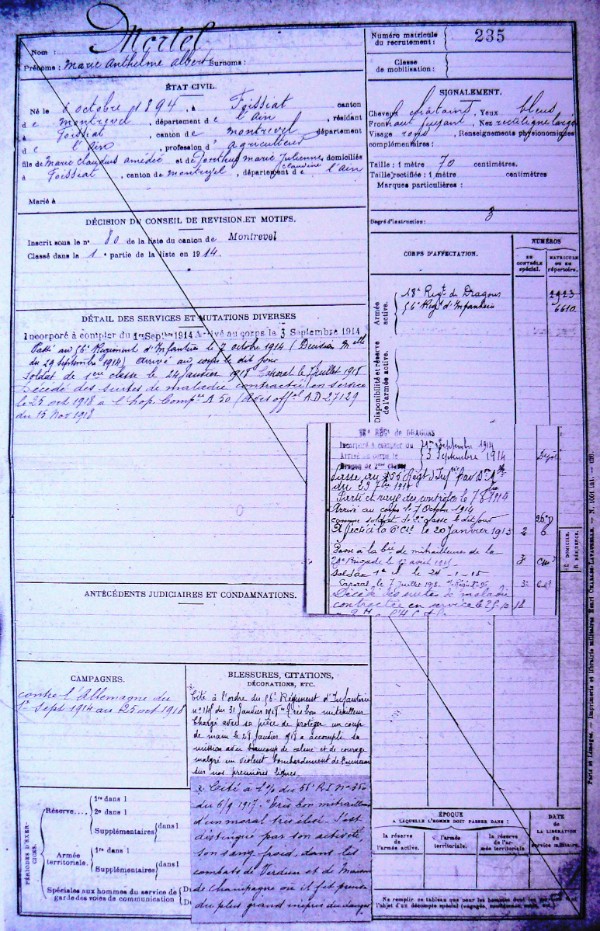 Nom : Mortel
Prénoms : Marie Anthelme Albert Surnoms :
Numéro matricule du recrutement : 235
Classe de mobilisation :
ÉTAT CIVIL.
Né le octobre 1894, à Foissiat canton
de Montrevel, département de l'Ain, résidant
à Foissiat, canton de Montrevel département
de l'Ain, profession d'agriculteur
fils de Marie Claudius Amédée et de Marie Julienne Claudine domiciliés
à Foissiat, canton de Montrevel, département de l'Ain
Marié à
SIGNALEMENT.
Cheveux châtains, Yeux bleus
Front haut fuyant, Nez rectiligne large
Visage rond, Renseignements physionomiques
complémentaires :
Taille : 1 mètre 70 centimètres.
Taille rectifiée : 1 mètre centimètres.
Marques particulières :
Degré d'instruction : 3
DÉCISION DU CONSEIL DE REVISION ET MOTIFS.
Inscrit sous le n° 80 de la liste du canton de Montrevel
Classé dans la 1e partie de la liste en 1914.
DÉTAIL DES SERVICES ET MUTATIONS DIVERSES
Incorporé à compter du 1er Septbre 1914 Arrivé au corps le 3 Septembre 1914
Passé au 56e Régiment d'Infanterie le 7 octobre 1914 (Décision Melle
du 29 septembre 1914) arrivé au corps le dit jour
Soldat de 1ère classe le 24 janvier 1918 Caporal le 7 juillet 1918
Décédé des suites de maladie contractée en service
le 25 oct 1918 à l'hop. Comp. A 50 (Avis offel A.D-27129
du 15 Nov 1918
CORPS D'AFFECTATION.
NUMÉROS
AU CONTRÔLE spécial.
MATRICULE OU AU répertoire.
Armée active.
18e Régt de Dragons
56e Régt d'Infanterie
6610
Disponibilité et réserve de l'armée active.
DE DRAGONS
Incorporé à compter du 1er Septembre 1914
Arrivé au corps le 3 Septembre 1914
Dragon de 2me Classe
Passé au Régt d'Infie
Arrivé au corps le 7 Octobre 1914
comme soldat de 2e classe le dit jour
Affecté la 6e Cie le 20 Janvier 1915
Passé à la Cie de mitrailleuses de la
Brigade le avril 1915
Soldat 1e Cl le 24-1-18
Caporal le 7 Juillet 1918
Décédé des suites de maladie
contractée en service le 25.10.18
ANTÉCÉDENTS JUDICIAIRES ET CONDAMNATIONS.
CAMPAGNES.
contre l'Allemagne du
1er Sept 1914 au 25 oct 1918
BLESSURES, CITATIONS,
DÉCORATIONS, ETC.
Cité à l'ordre du 56e Régiment d'Infanterie
n° 148 du 31 Janvier 1918 "Très bon mitrailleur
Chargé avec sa pièce de protéger un coup
de main le 28 Janvier 1918 a accompli sa
mission avec beaucoup de calme et de courage
malgré un violent bombardement de l'ennemi
sur nos premières lignes.
Cité à l'O/ du RI N° 350
du 6/9 1917. "Très bon mitrailleur
d'un moral très élevé. S'est
distingué par son activité,
son sang froid, dans les
combats de Verdun et de Maisons
de Champagne où il fit preuve
du plus grand mépris du danger
PÉRIODES D'EXERCICES.
Réserve....
1re dans l
2e dans l
Supplémentaires (dans l
Armée territoriale.
1re dans l
Supplémentaires (dans l
Spéciales aux hommes du service de garde des voies de communication
ÉPOQUE
A LAQUELLE L'HOMME DOIT PASSER DANS :
la réserve de l'armée active.
l'armée territoriale.
la réserve de l'armée territoriale
DATE
DE LA LIBÉRATION
du service militaire.
Paris et Limoges. — Imprimerie et librairie militaires Henri CHARLES-LAVAUZELLE.